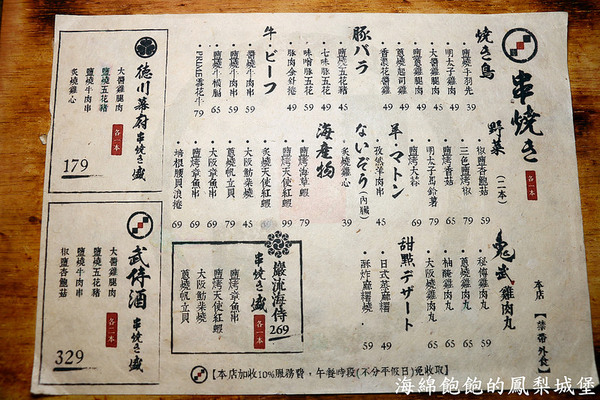 串焼き
各一本
焼き鳥
・鹽燒手羽先 39
・明太子雞肉 49
・大醬雞腿肉 45
・蔥燒雞腿肉 49
・蔥燒起司雞 49
・香濃花醬雞 49
豚バラ
・鹽燒五花豬 45
・七味豚五花 49
・味噌豚五花 49
・豚肉金針捲 49
牛・ビーフ
・醬燒牛肉串 59
・鹽燒牛肉串 59
・鹽燒牛橫膈 65
・PRIME雪花牛 79
野菜
(二本)
・椒鹽杏鮑菇 59
・三色鹽烤椒 65
・鹽烤香菇 65
・明太子馬鈴薯 79
・鹽烤大蒜 69
羊・マトン
・孜然洋肉串 45
ないぞう(内臓)
・炙燒雞心 39
海産物
・鹽烤海草蝦 79
・鹽燒天使紅蝦 99
・炙燒天使紅蝦 99
・大阪魷朵燒 45
・蔥燒帆立貝 79
・大阪章魚串 69
・鹽烤章魚串 69
・培根腰貝浪捲 69
鬼武雞肉丸
・秘傳雞肉丸 59
・蔥燒雞肉丸 65
・柚醃雞肉丸 65
・大阪燒雞肉丸 65
甜點デザート
・日式蒸麻糬 49
・酥炸麻糬燒 59
本店
【禁帶外食】
德川幕府串焼き盛
各一本
大醬雞腿肉
鹽燒五花豬
鹽燒牛肉串
炙燒雞心
179
武侍酒串焼き盛
各一本
大醬雞腿肉
鹽燒五花豬
鹽燒牛肉串
椒鹽杏鮑菇
329
巖流海侍
串焼き盛
各一本
269
鹽烤章魚串
鹽烤天使紅蝦
大阪魷朵燒
蔥燒帆立貝
【本店加收10%服務費，午餐時段(不分平假日)免收取】
海綿飽飽的鳳梨城堡